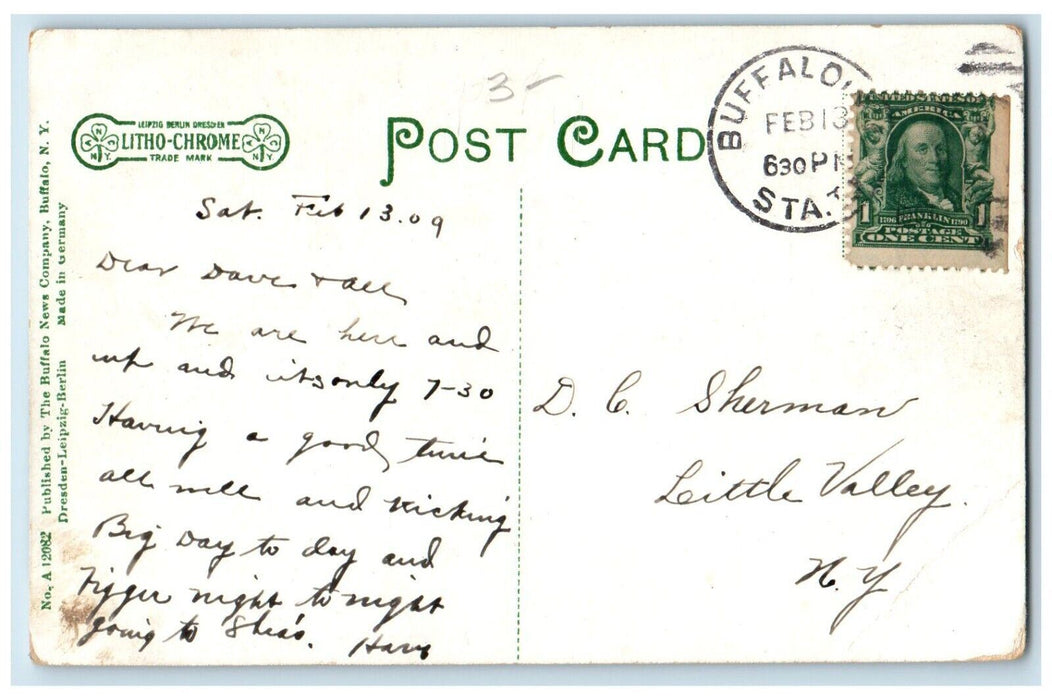 3-
LEIPZIG BERLIN DRESDEN
LITHO-CHROME
TRADE MARK
N N Y.
N N Y.
POST CARD
BUFFALO
FEB 13
630 PM
STA.
AMERICA
1 1706 FRANKLIN 1790 1
POSTAGE
ONE CENT
No. A 12082 Published by The Buffalo News Company, Buffalo, N. Y.
Dresden-Leipzig-Berlin Made in Germany
Sat. Feb 13.09
Dear Dave & all
We are here and
up and its only 7-30
Having a good time
all well and kicking
Big Day to day and
night to night
going to Shea's. Harv
D. C. Sherman
Little Valley.
N. Y